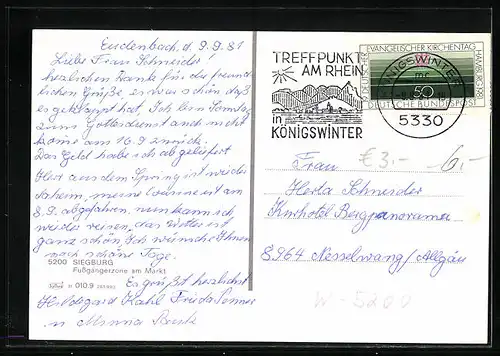 Eudenbach, d. 9.9.81
Liebe Frau Schneider!
herzlichen Danke für die freund-
lichen Grüße, es war schön, daß
es geklappt hat, Ich bin Sonntag
zum Gottesdienst und
komme am 16.9 zurück.
Das Geld habe ich abgeliefert
aus dem Spring ist wieder
daheim, meine Cousine ist am
8.9. abgefahren, nun kann ich
wieder reisen, das Wetter ist
ganz schön, Ich wünsche Ihnen
noch schöne Tage.
5200 SIEGBURG
Fußgängerzone am Markt
010.9
Es grüßt herzlichst
Hildegard Kahl Frieda
u Minna
TREFFPUNKT
AM RHEIN
in
KÖNIGSWINTER
KÖNIGSWINTER
5330
DEUTSCHER EVANGELISCHER KIRCHENTAG HAMBURG 1981
50
DEUTSCHE BUNDESPOST
€ 3,-
6,-
Frau
Herta Schneider
Kurhotel Bergpanorama
8964 Nesselwang/Allgäu
W-5200